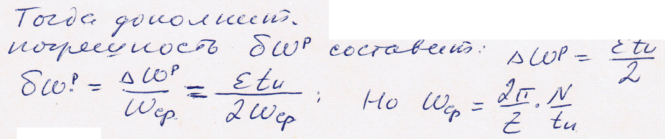 Тогда дополнит.
погрешность δωᵖ составит: Δωᵖ = εtи/2
δωᵖ = Δωᵖ/ωср = εtи/2ωср ; Но ωср = 2π/z · N/tи